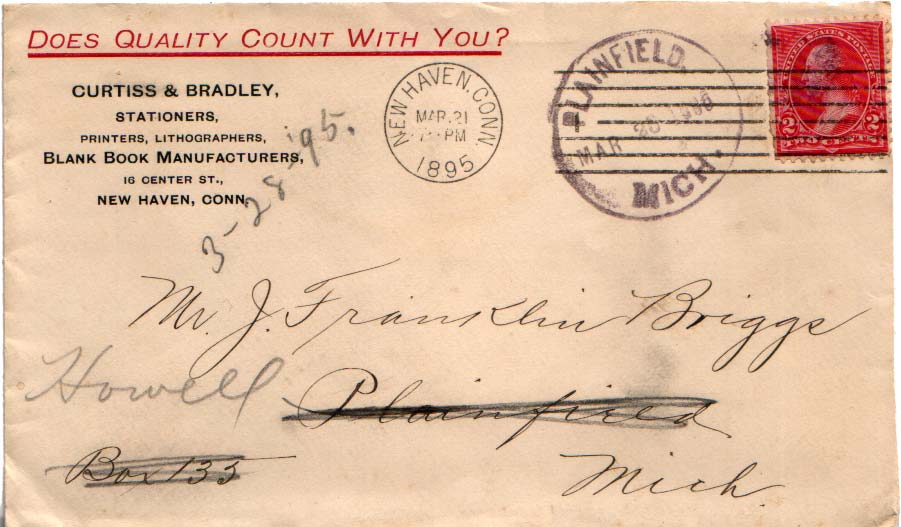 DOES QUALITY COUNT WITH YOU?
CURTISS & BRADLEY,
STATIONERS,
PRINTERS, LITHOGRAPHERS,
BLANK BOOK MANUFACTURERS,
16 CENTER ST.,
NEW HAVEN, CONN.
3-28-'95.
NEW HAVEN, CONN.
MAR. 21
PM
1895
PLAINFIELD,
MAR
MICH.
UNITED STATES POSTAGE
2 2
TWO CENTS
Mr. J. Franklin Briggs
Howell
Plainfield
Box 135
Mich.